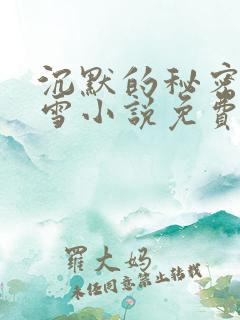 沉默的秘密
雪小说免费
羅大媽
未经同意禁止转载